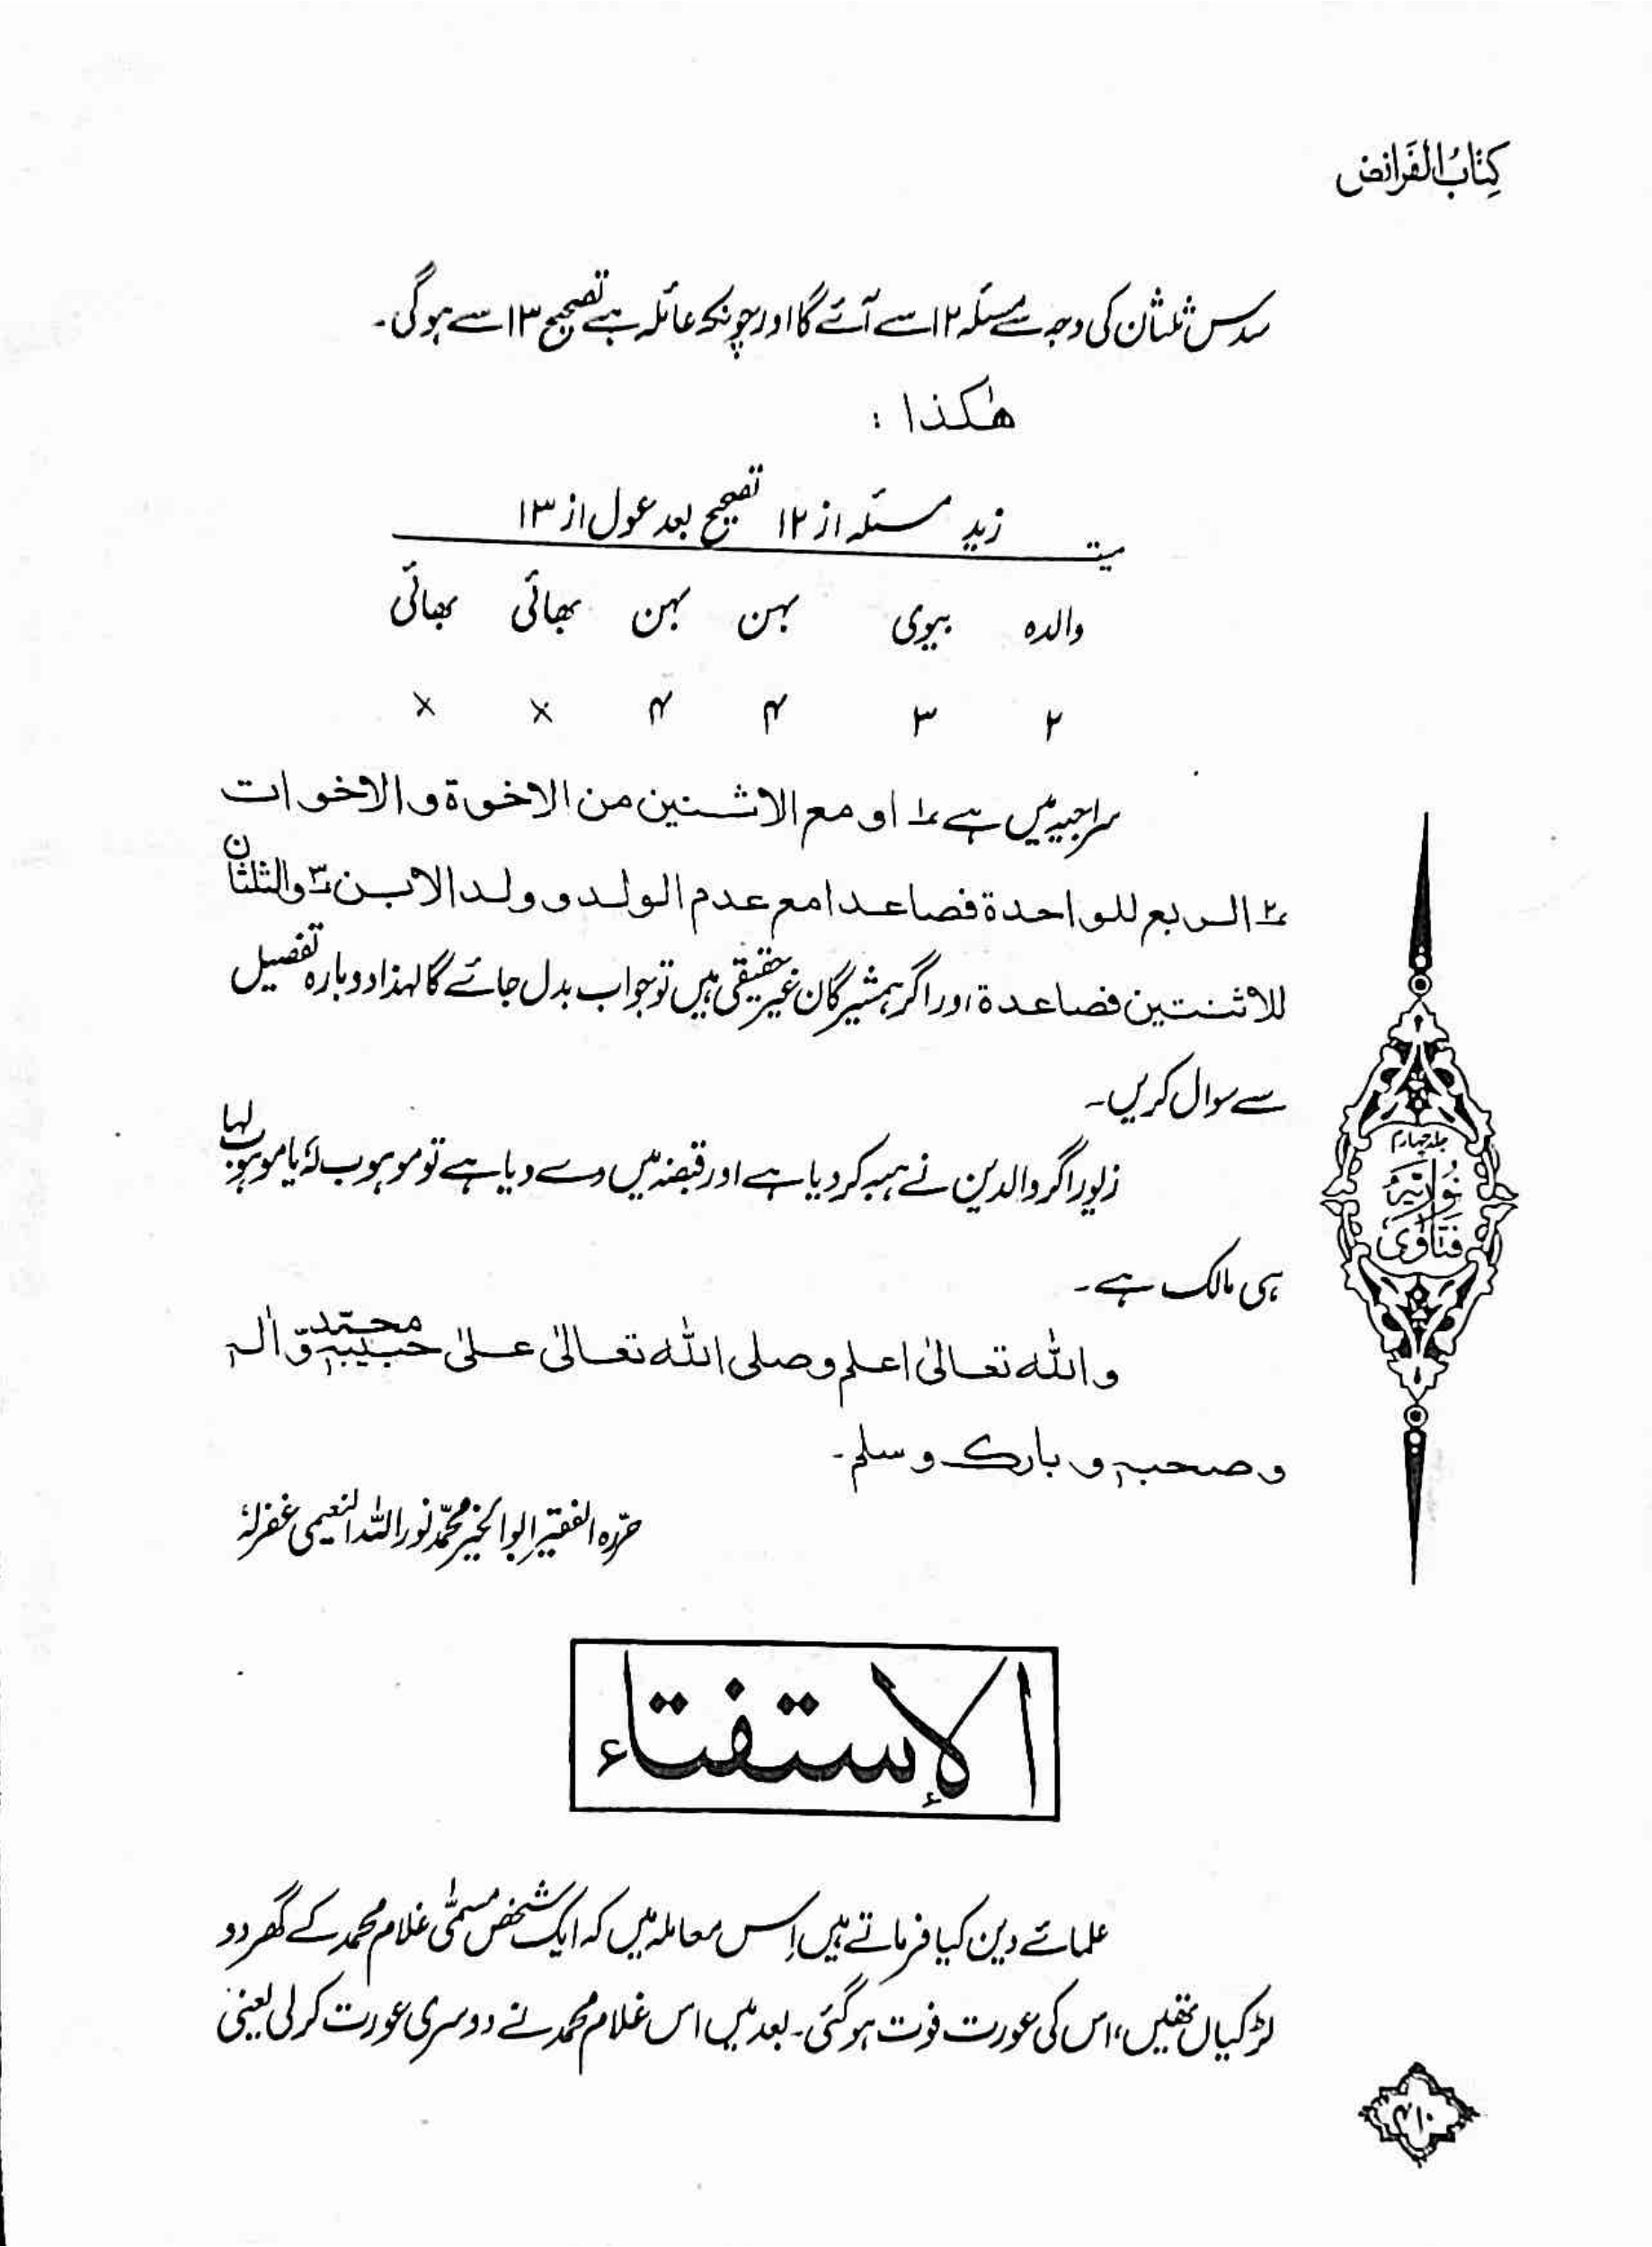 کِتَابُ الفَرائض
سدس ثلثان کی وجہ سے مسئلہ ۱۲ سے آئے گا اور چونکہ عائلہ ہے تصحیح ۱۳ سے ہوگی۔
هٰكذا :
میت زید مسئلہ از ۱۲ تصحیح بعد عول از ۱۳
والدہ بیوی بہن بہن بھائی بھائی
۲ ۳ ۴ ۴ × ×
سراجیہ میں ہے ۱؎ او مع الاثنين من الاخوة والاخوات
۲؎ الربع للواحدة فصاعدا مع عدم الولد و ولد الابن ۳؎ والثلثان
للاثنتين فصاعدة اور اگر ہمشیرگان غیر حقیقی ہیں تو جواب بدل جائے گا لہذا دوبارہ تفصیل
سے سوال کریں۔
زیور اگر والدین نے ہبہ کر دیا ہے اور قبضہ میں دے دیا ہے تو موہوب لہٗ یا موہوب لہا
ہی مالک ہے۔
واللّٰه تعالىٰ اعلم وصلى اللّٰه تعالىٰ علىٰ حبيبه محمّد وّاٰله
وصحبه وبارك وسلم۔
حرّرہ الفقیر ابوالخیر محمّد نور اللہ النعیمی غفرلہٗ
جلد چہارم
فتاویٰ نوریہ
الإستفتاء
علمائے دین کیا فرماتے ہیں اِس معاملہ میں کہ ایک شخص مسمّٰی غلام محمد کے گھر دو
لڑکیاں تھیں، اس کی عورت فوت ہوگئی۔ بعد میں اس غلام محمد نے دوسری عورت کر لی یعنی
۴۱۰